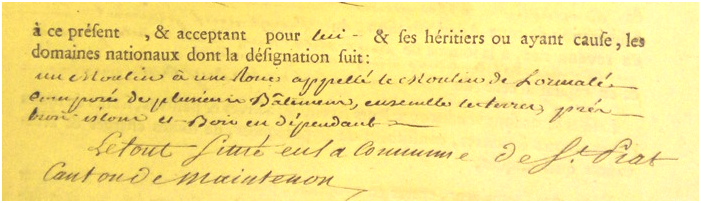 à ce présent , & acceptant pour lui - & ses héritiers ou ayant cause, les
domaines nationaux dont la désignation suit :
un Moulin à une Roue appellé le Moulin de Lormalé
composé de plusieurs Bâtimens, ensemble les terres, prés
et Bois en dépendant
Le tout Situé en la Commune de St. Piat
Canton de Maintenon